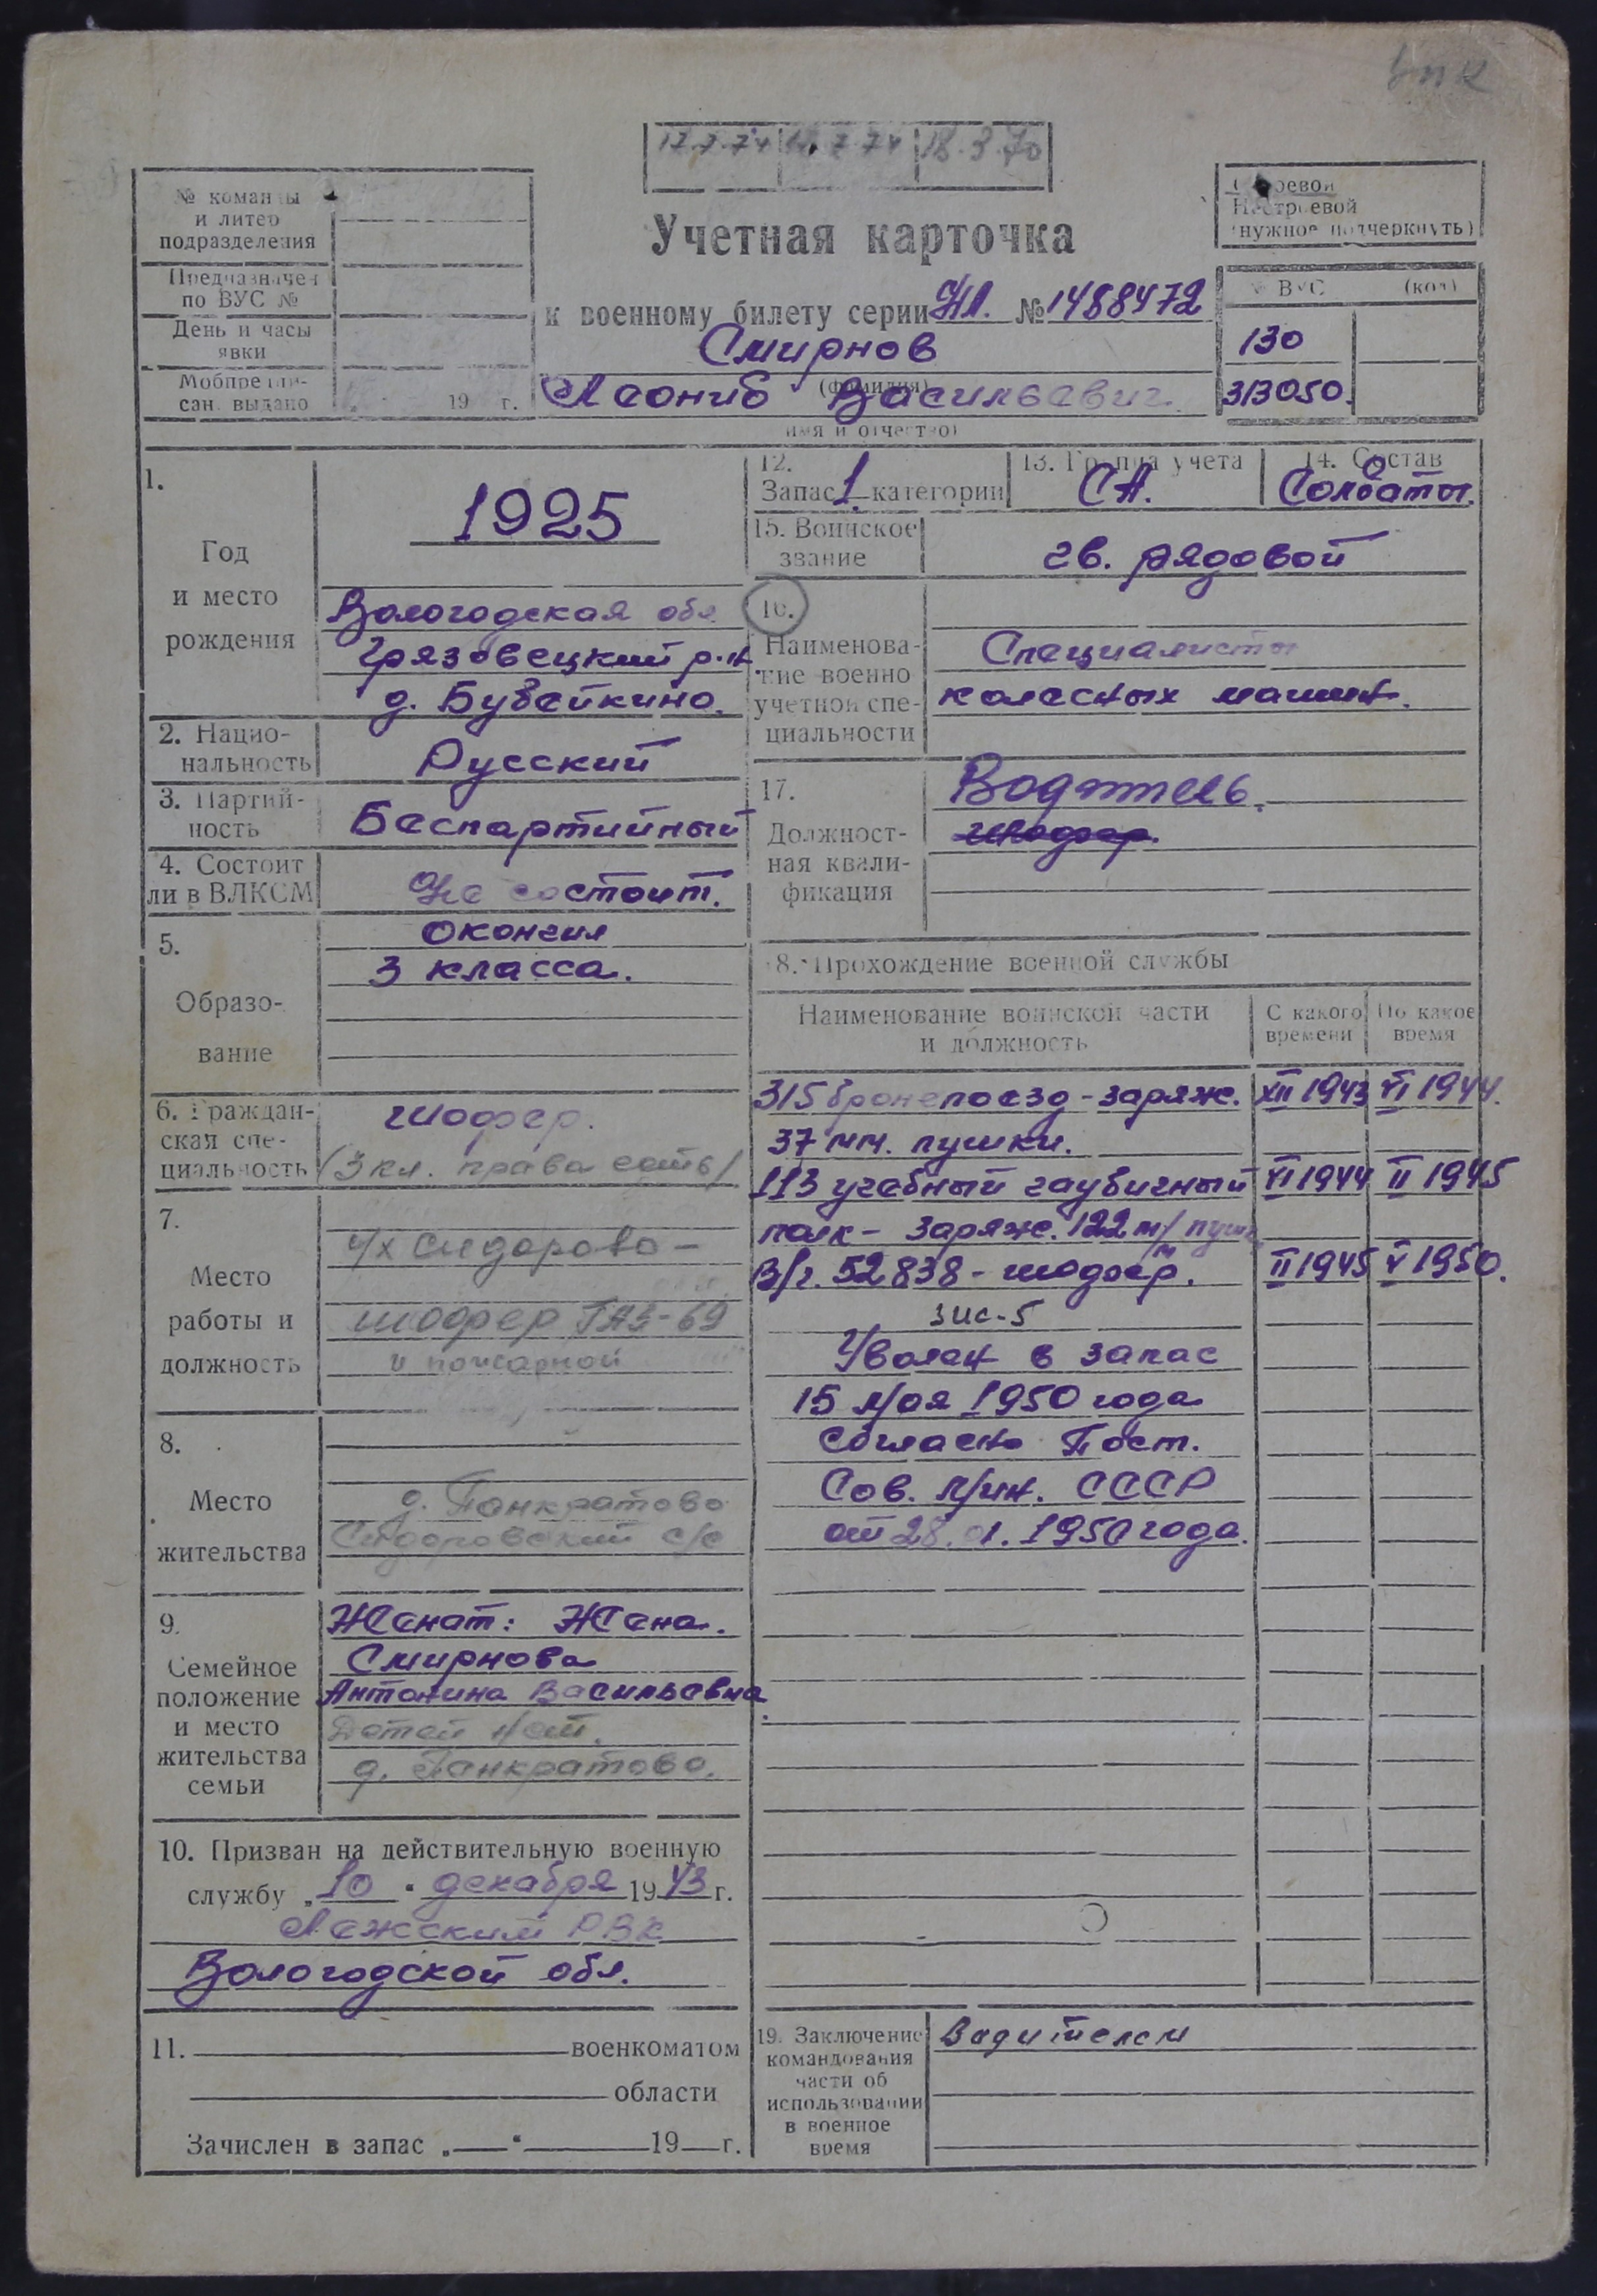 упк
17.7.74 18.3.70
№ команды
и литер
подразделения
Предназначен
по ВУС №
День и часы
явки
Мобпредпи-
сан. выдано 19 г.
Учетная карточка
к военному билету серии НЛ. № 1488472
Смирнов
(фамилия)
Леонид Васильевич
имя и отчество)
Строевой
Нестроевой
(нужное подчеркнуть)
№ ВУС (код)
130
313050.
1.
Год
и место
рождения
1925
Вологодская обл.
Грязовецкий р-н
д. Бубейкино.
2. Нацио-
нальность
Русский
3. Партий-
ность
Беспартийный
4. Состоит
ли в ВЛКСМ
Не состоит.
5.
Образо-
вание
Окончил
3 класса.
6. Граждан-
ская спе-
циальность
шофер.
(3 кл. права есть)
7.
Место
работы и
должность
с/х Сидорово -
шофер ГАЗ-69
и пожарной
8.
Место
жительства
д. Панкратово
Сидоровский с/с
9.
Семейное
положение
и место
жительства
семьи
Женат: Жена.
Смирнова
Антонина Васильевна.
Детей нет.
д. Панкратово.
10. Призван на действительную военную
службу „10" декабря 1943 г.
Лежским РВК
Вологодской обл.
11. военкоматом
области
Зачислен в запас „ " 19 г.
12.
Запас 1 категории
13. Группа учета
СА.
14. Состав
Солдаты.
15. Воинское
звание
гв. рядовой
16.
Наименова-
ние военно
учетной спе-
циальности
Специалисты
колесных машин.
17.
Должност-
ная квали-
фикация
Водитель.
шофер.
18. Прохождение военной службы
Наименование воинской части
и должность
С какого
времени
По какое
время
315 бронепоезд - заряж. XII 1943 VI 1944.
37 мм. пушки.
113 учебный гаубичный VI 1944 II 1945
полк - заряж. 122 м/м пушк.
В/ч. 52838 - шофер. II 1945 V 1950.
ЗИС-5
Уволен в запас
15 Мая 1950 года
согласно Пост.
Сов. Мин. СССР
от 28.01.1950 года.
19. Заключение
командования
части об
использовании
в военное
время
Водителем